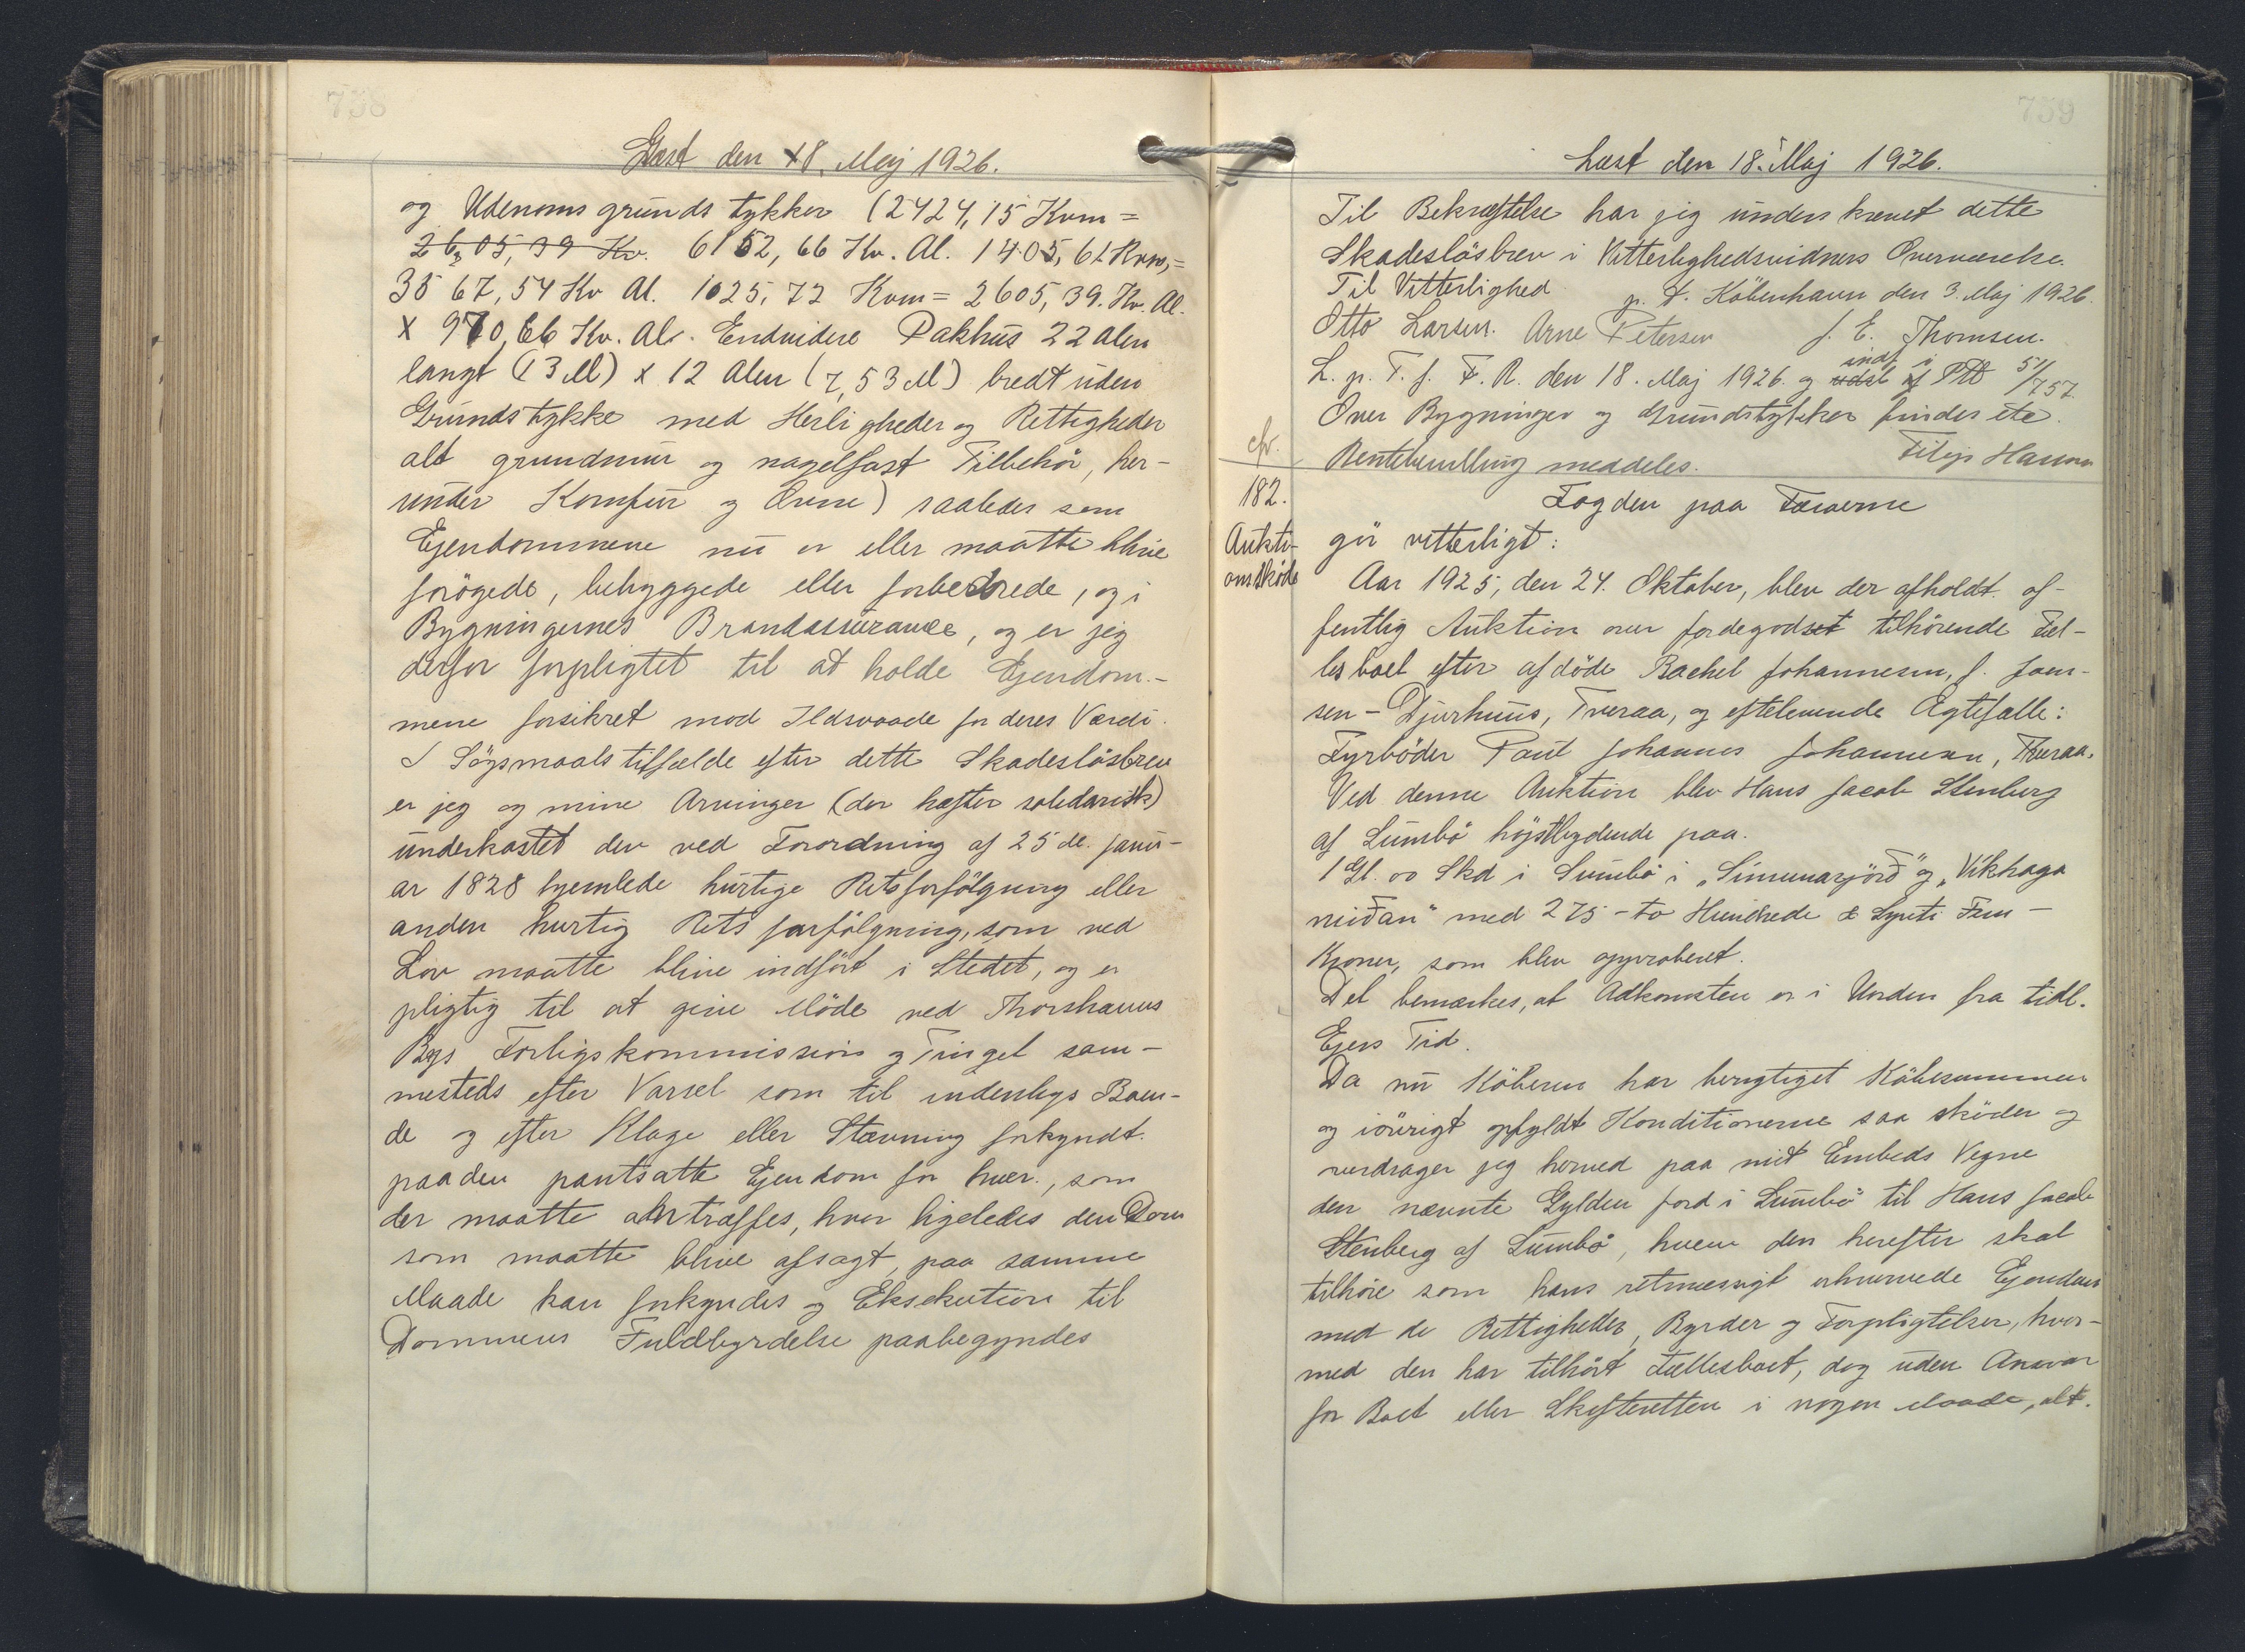 738
Læst den 18. Maj 1926.
og Udenomsgrundstykker (2424,15 Kvm =
2605,39 Kv. 6152,66 Kv. Al. 1405,61 Kvm, =
3567,54 Kv Al. 1025,72 Kvm = 2605,39. Kv. Al.
x 970,66 Kv. Al. Endvidere Pakhus 22 Alen
langt (13 M) x 12 Alen (7,53 M) bredt uden
Grundstykke med Herligheder og Rettigheder
alt grundmur og nagelfast Tilbehör, her-
under Komfur og Ovne) saaledes som
Ejendommene nu er eller maatte blive
forögede, bebyggede eller forbedrede, og i
Bygningernes Brandassurance, og er jeg
derfor forpligtet til at holde Ejendom-
mene forsikret mod Ildsvaade for deres Værdi.
I Sögsmaalstilfælde efter dette Skadeslösbrev
er jeg og mine Arvinger (der hæfter solidarisk)
underkastet den ved Forordning af 25 de. Janu-
ar 1828 hjemlede hurtige Retsforfölgning eller
anden hurtig Retsforfölgning, som ved
Lov maatte blive indfört i Stedet, og er
pligtig til at give Möde ved Thorshavns
Bys Forligskommission og Tinget sam-
mesteds efter Varsel som til indenbys Boen-
de og efter Klage eller Stævning forkyndt
paa den pantsatte Ejendom for hver, som
der maatte antræffes, hvor ligeledes den Dom
som maatte blive afsagt, paa samme
Maade kan forkyndes og Eksekution til
Dommens Fuldbyrdelse paabegyndes
739
Læst den 18. Maj 1926.
Til Bekræftelse har jeg underskrevet dette
Skadeslösbrev i Vitterlighedsvidners Overværelse.
Til Vitterlighed p. t. Köbenhavn den 3. Maj 1926.
Otto Larsen. Arne Petersen J. E. Thomsen.
L. p. T. f. F. R. den 18. Maj 1926. og udsl af indf i Ptb 51/757.
Over Bygninger og Grundstykker findes ete.
cfr. Rentebevilling meddeles. Filip Hansen
182. Fogden paa Færöerne
Aukti-
onsskøde
gör vitterligt:
Aar 1925, den 24. Oktober, blev der afholdt of-
fentlig Auktion over Jordegodset tilhörende Fæl-
lesboet efter afdöde Rachel Johannesen, f. Joen-
sen-Djurhuus, Tveraa, og efterlevende Ægtefælle:
Fyrböder Poul Johannes Johannesen, Tveraa.
Ved denne Auktion blev Hans Jacob Stenberg
af Sumbö höjstbydende paa.
1 Gl. oo Skd i Sumbö i „Símunarjörð" og „Víkhaga
niðan" med 275 - to Hundrede & Sytti Fem -
Kroner, som blev approberet.
Det bemærkes, at Adkomsten er i Uorden fra tidl.
Ejers Tid.
Da nu Köberen har berigtiget Köbesummen
og iövrigt opfyldt Konditionerne saa sköder og
overdrager jeg herved paa mit Embeds Vegne
den nævnte Gylden Jord i Sumbö til Hans Jacob
Stenberg af Sumbö, hvem den herefter skal
tilhöre som hans retmæssigt erhvervede Ejendom
med de Rettigheder, Byrder og Forpligtelser, hvor-
med den har tilhört Fællesboet, dog uden Ansvar
for Boet eller Skifteretten i nogen Maade, alt.